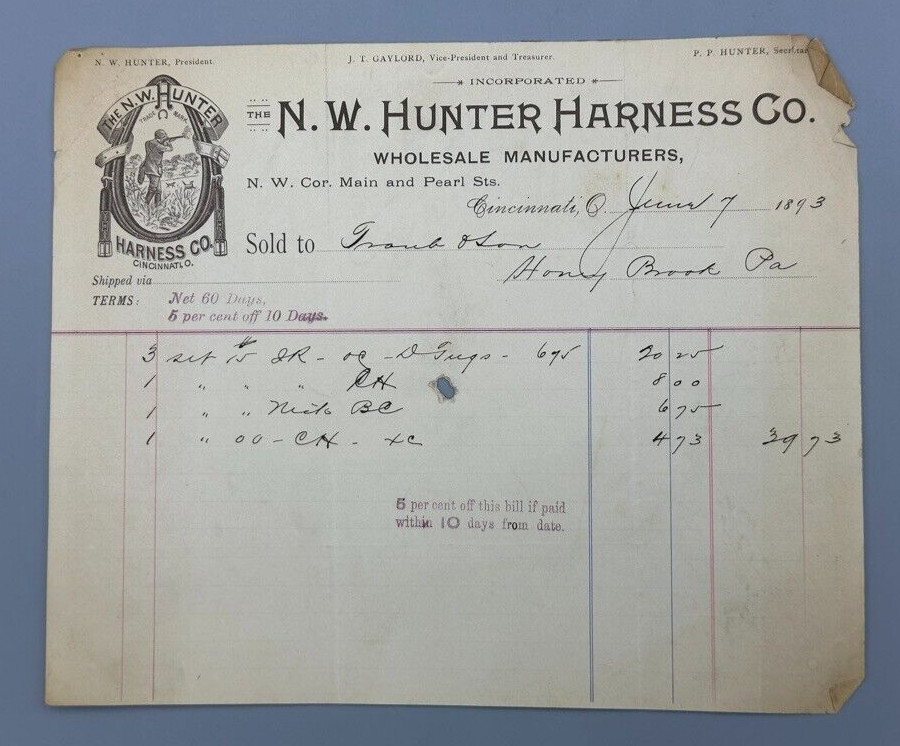 N. W. HUNTER, President. J. T. GAYLORD, Vice-President and Treasurer. P. P. HUNTER, Secretar
INCORPORATED
THE N. W. HUNTER HARNESS CO.
WHOLESALE MANUFACTURERS,
N. W. Cor. Main and Pearl Sts.
THE N.W. HUNTER
TRADE MARK
HARNESS CO.
CINCINNATI, O.
Cincinnati, O. June 7 1893
Sold to Traub & Son
Honey Brook Pa
Shipped via
TERMS: Net 60 Days,
5 per cent off 10 Days.
3 set 15 JR - oc - D Tugs - 675 20 25
1 " " " CH 8 00
1 " " BC 6 75
1 " 00 - CH - xc 4 73 39 73
5 per cent off this bill if paid
within 10 days from date.